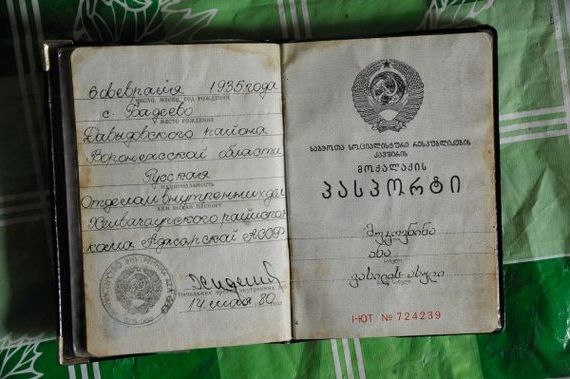 6 февраля 1935 года
ЧИСЛО, МЕСЯЦ, ГОД РОЖДЕНИЯ
с. Бадеево
МЕСТО РОЖДЕНИЯ
Давыдовского района
Воронежской области
Русская
НАЦИОНАЛЬНОСТЬ
Отделом внутренних дел
КЕМ ВЫДАН ПАСПОРТ
Хелвачаурского райиспол
кома Аджарской АССР
14 мая 80
ᲡᲐᲑᲭᲝᲗᲐ ᲡᲝᲪᲘᲐᲚᲘᲡᲢᲣᲠᲘ ᲠᲔᲡᲞᲣᲑᲚᲘᲙᲔᲑᲘᲡ
ᲙᲐᲕᲨᲘᲠᲘᲡ
ᲛᲝᲥᲐᲚᲐᲥᲘᲡ
ᲞᲐᲡᲞᲝᲠᲢᲘ
ანა
ვასილის ასული
I-ЮТ № 724239